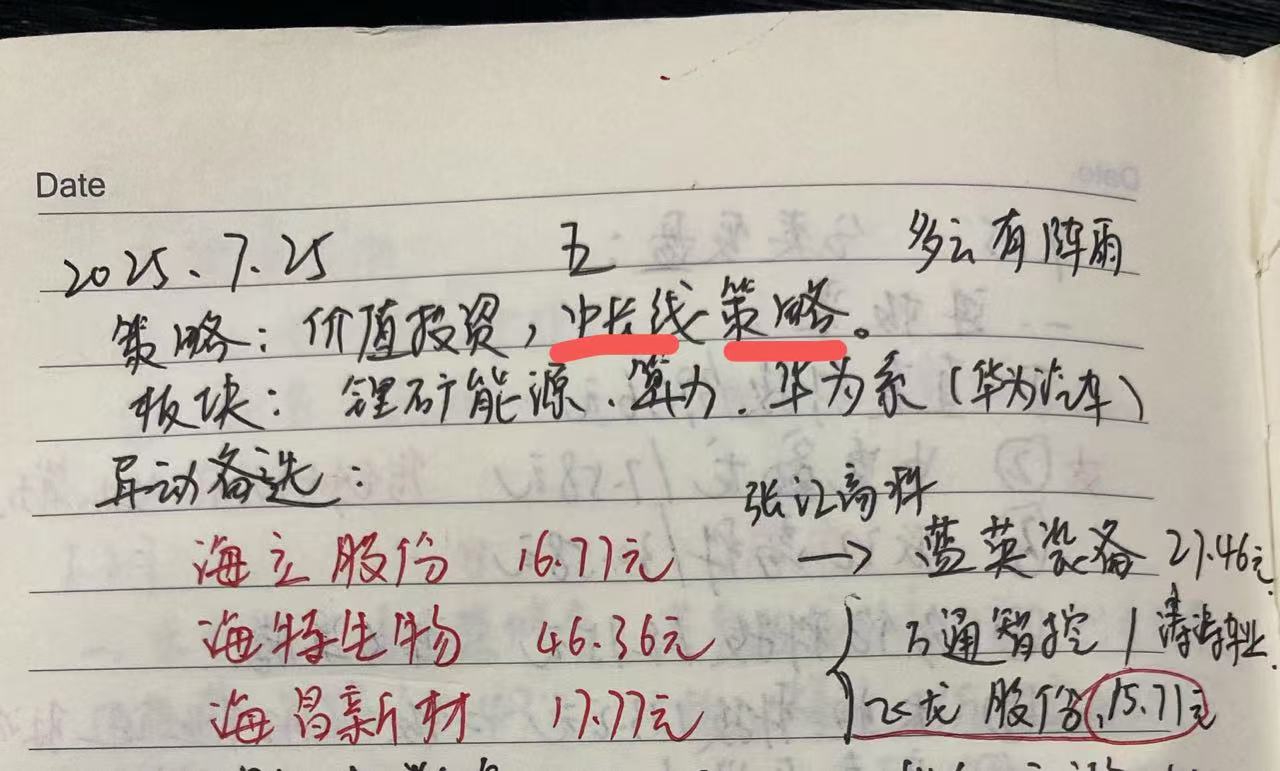 Date
2025.7.25 五 多云有阵雨
策略：价值投资，中长线策略。
板块：锂矿能源、算力、华为系（华为汽车）
异动备选：
张江高科
海立股份 16.77元 → 蓝英装备 27.46元
海特生物 46.36元 万通智控 / 涛涛车业
海昌新材 17.77元 飞龙股份 15.71元